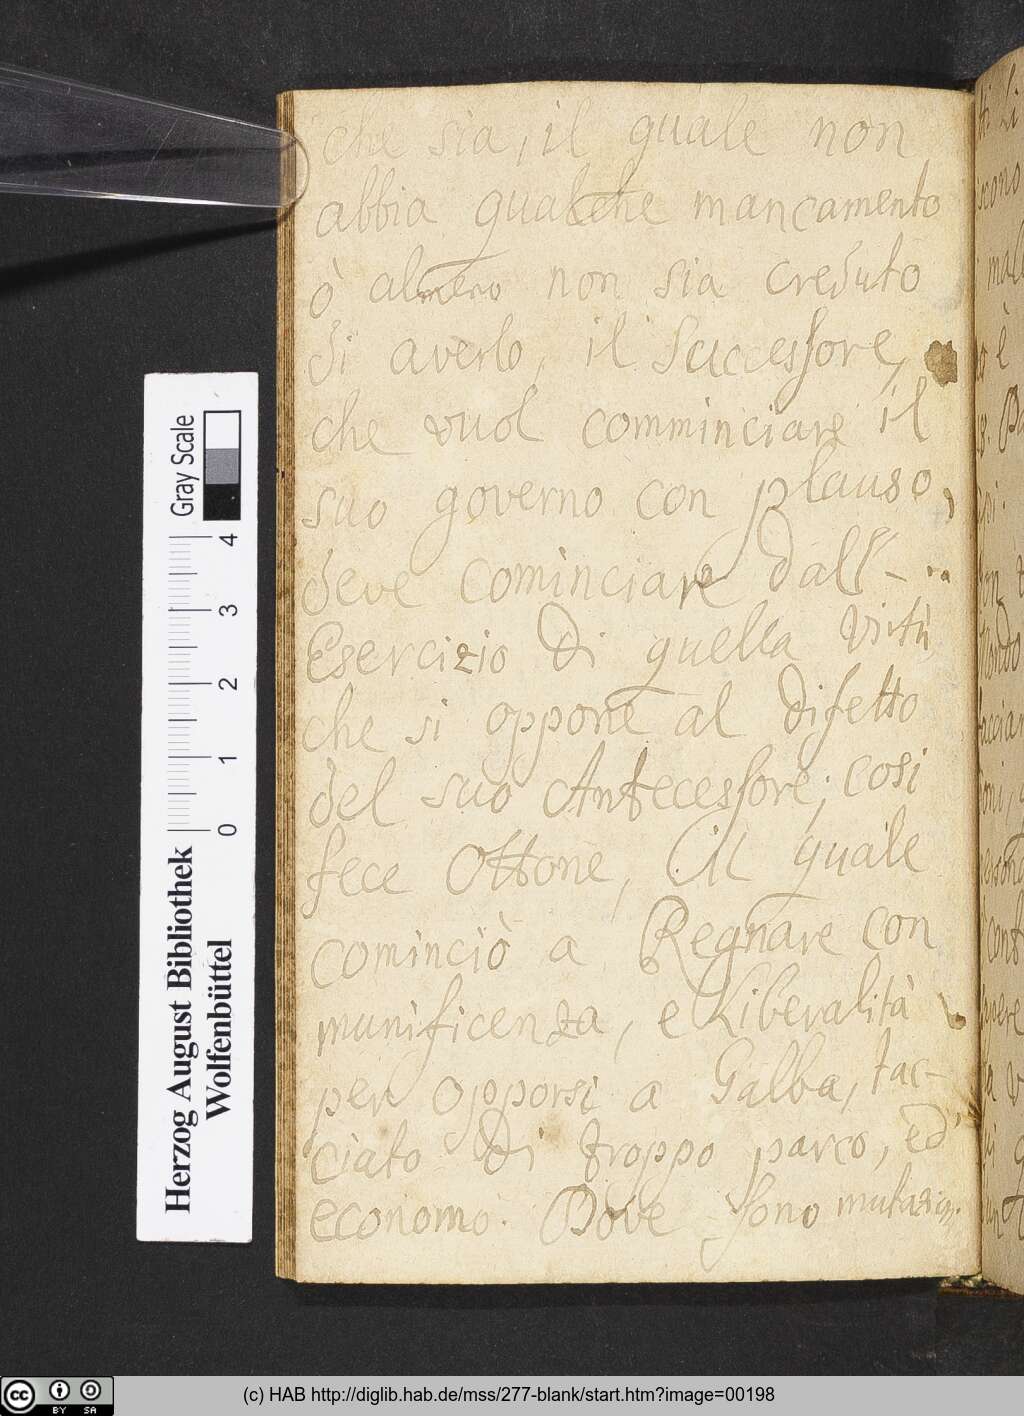 che sia, il quale non
abbia qualche mancamento
ò almeno non sia creduto
di averlo, il Successore,
che vuol comminciare il
suo governo con plauso,
deve cominciare dall'-
Esercizio di quella virtù
che si oppone al difetto
del suo Antecessore; cosi
fece Ottone, il quale
cominciò a Regnare con
munificenza, e Liberalità
per opporsi a Galba, tac-
ciato di troppo parco, ed
economo. Dove sono mutazion.
Herzog August Bibliothek
Wolfenbüttel
0 1 2 3 4
Gray Scale
cc BY SA
(c) HAB http://diglib.hab.de/mss/277-blank/start.htm?image=00198